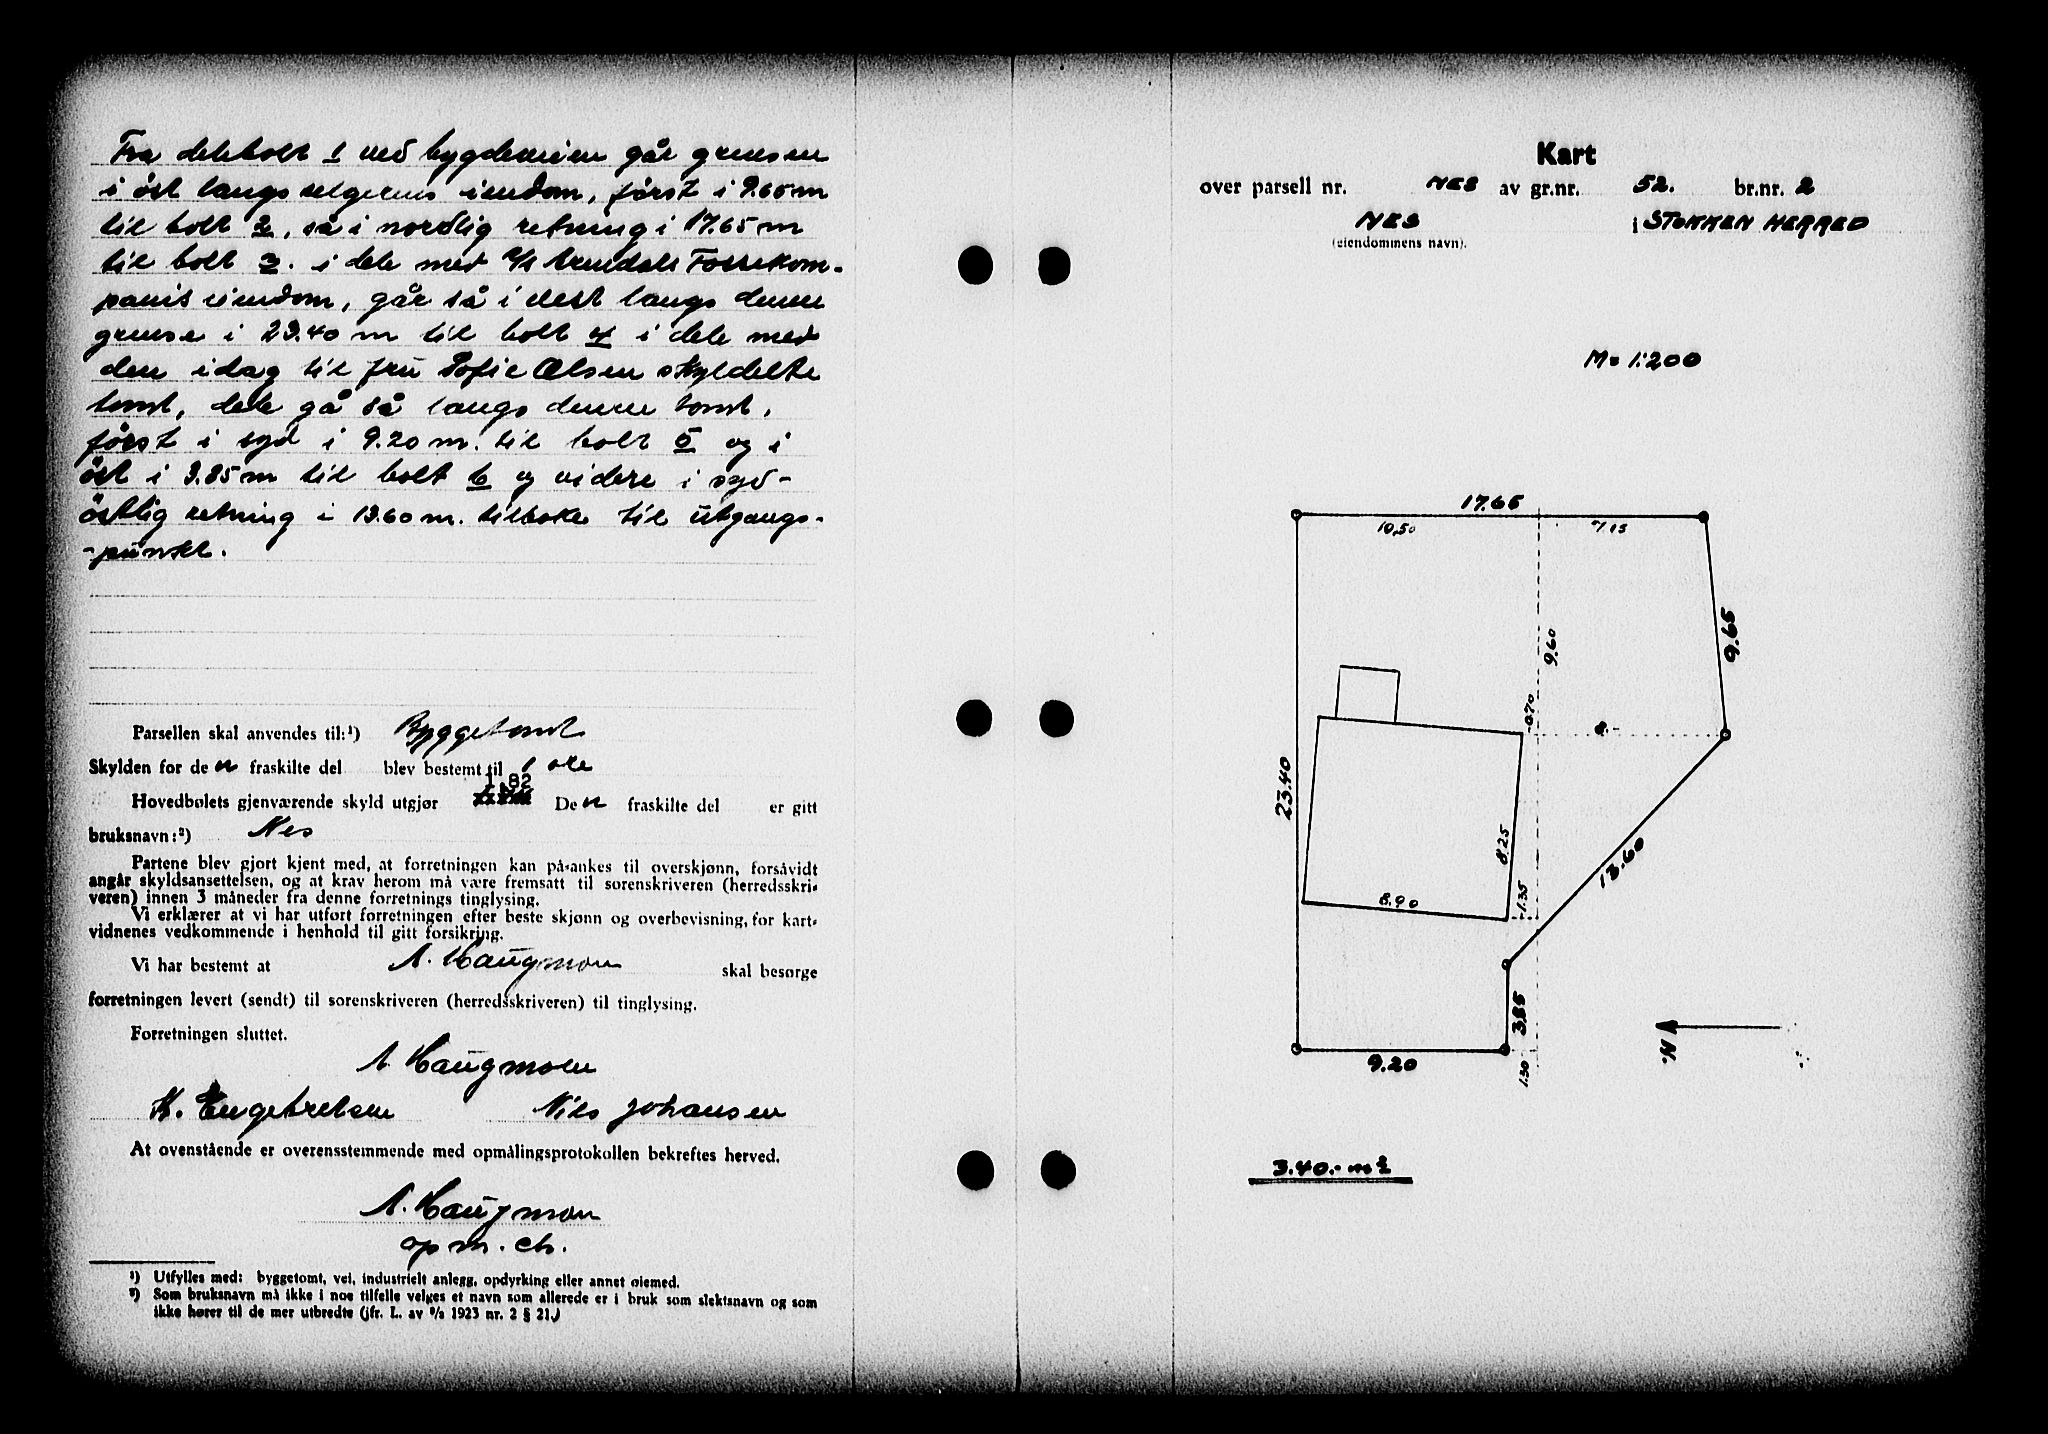 Fra deletolt 1 ved bygdeveien går grensen
i öst langs selgerens eiendom, först i 9.65 m
til bolt 2, så i nordlig retning i 17.65 m
til bolt 3. i dele med A/S Arendals Fossekom-
panis eiendom, går så i vest langs denne
grense i 23.40 m til bolt 4 i dele med
den idag til fru Sofie Olsen skyldelte
tomt, dele gå så langs denne tomt,
först i syd i 9.20 m. til bolt 5 og i
öst i 3.85 m til bolt 6 og videre i syd-
östlig retning i 13.60 m. tilbake til utgangs-
-punkt.
Parsellen skal anvendes til:¹) Byggetomt
Skylden for den fraskilte del blev bestemt til 1 øre
1.82
Hovedbølets gjenværende skyld utgjør Den fraskilte del er gitt
bruksnavn:²) Nes
Partene blev gjort kjent med, at forretningen kan på-ankes til overskjønn, forsåvidt
angår skyldsansettelsen, og at krav herom må være fremsatt til sorenskriveren (herredsskri-
veren) innen 3 måneder fra denne forretnings tinglysing.
Vi erklærer at vi har utført forretningen efter beste skjønn og overbevisning, for kart-
vidnenes vedkommende i henhold til gitt forsikring.
Vi har bestemt at A. Haugmoen skal besørge
forretningen levert (sendt) til sorenskriveren (herredsskriveren) til tinglysing.
Forretningen sluttet.
A. Haugmoen
K. Engebretsen Nils Johansen
At ovenstående er overensstemmende med opmålingsprotokollen bekreftes herved.
A. Haugmoen
opm. ch.
¹) Utfylles med: byggetomt, vei, industrielt anlegg, opdyrking eller annet øiemed.
²) Som bruksnavn må ikke i noe tilfelle velges et navn som allerede er i bruk som slektsnavn og som
ikke hører til de mer utbredte (jfr. L. av ⁹/₂ 1923 nr. 2 § 21.)
Kart
over parsell nr. NES av gr.nr. 52. br.nr. 2
NES i STOKKEN HERRED
(eiendommens navn).
M= 1:200
17.65
10,50 7,15
9.65
9.60
0.70
8.-
23.40
8.25
13.60
8.90
1.35
3.85
9.20
1.30
N.
3.40.- m²